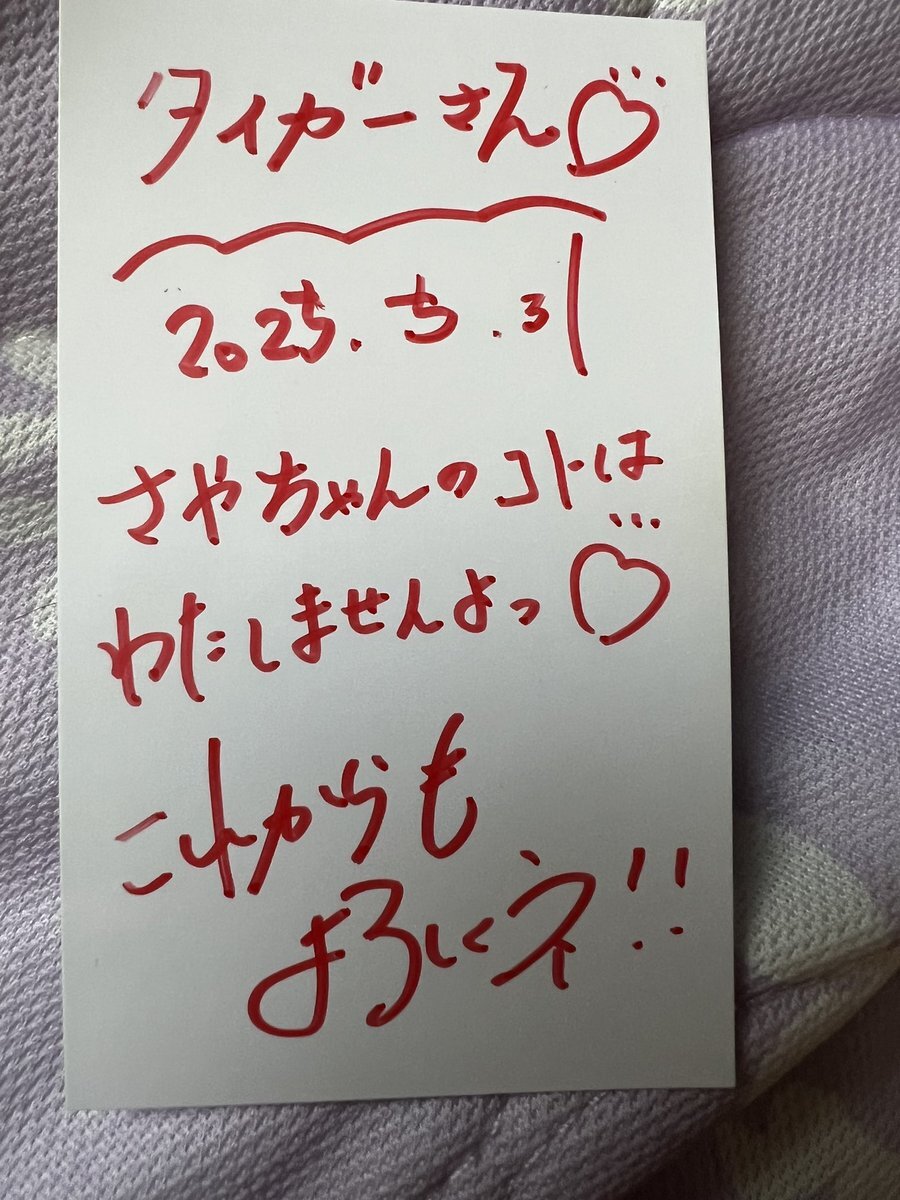 タイガーさん♡
2025.5.31
さやちゃんのコトは
わたしませんよっ♡
これからも
よろしくネ!!